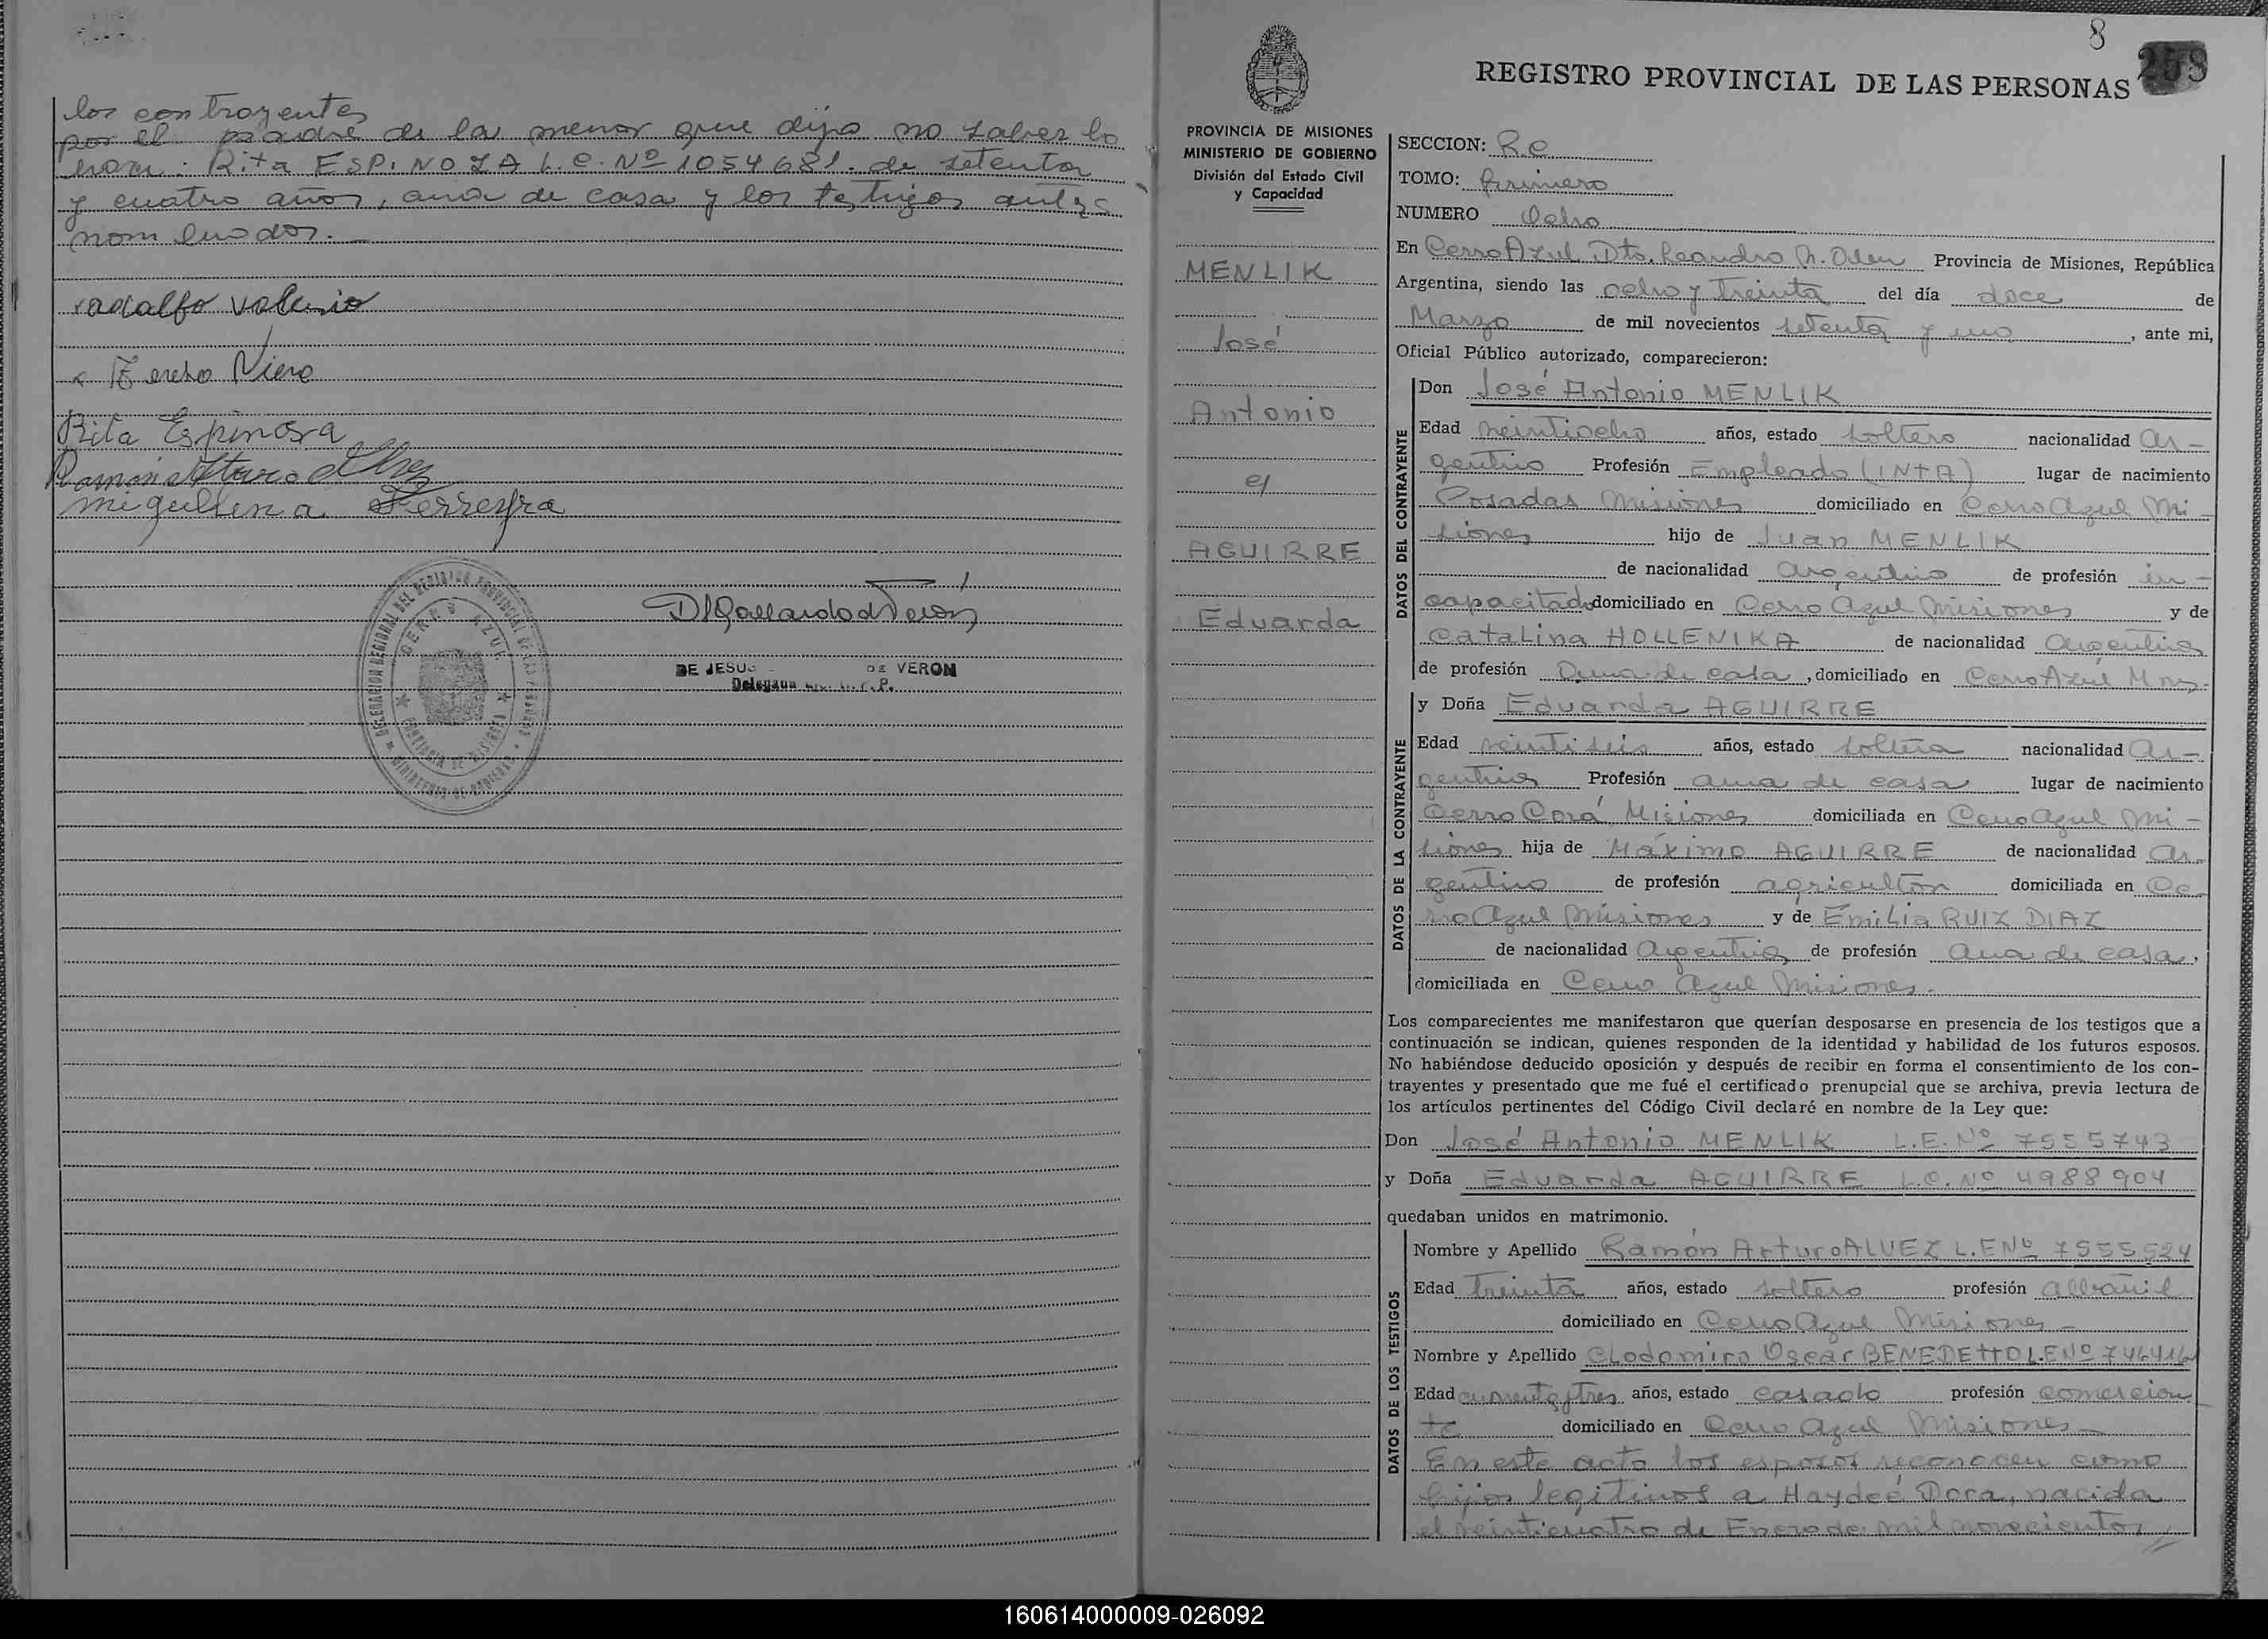 los contrayentes
por el padre de la menor que dijo no saber lo
hace: Rita ESPINOZA L.C. Nº 1054681. de setenta
y cuatro años, ama de casa y los testigos antes
nombrados.—
x adalfo valenio
Rita Espinosa
migueliena Ferreyra
DE JESUS DE VERON
CERRO AZUL
8
REGISTRO PROVINCIAL DE LAS PERSONAS
PROVINCIA DE MISIONES
MINISTERIO DE GOBIERNO
División del Estado Civil
y Capacidad
MENLIK
José
Antonio
c/
AGUIRRE
Eduarda
SECCION: R.C
TOMO: Primero
NUMERO Ocho
En Cerro Azul Dto. Leandro N. Alem Provincia de Misiones, República
Argentina, siendo las ocho y treinta del día doce de
Marzo de mil novecientos setenta y uno, ante mi,
Oficial Público autorizado, comparecieron:
DATOS DEL CONTRAYENTE
Don José Antonio MENLIK
Edad veintiocho años, estado soltero nacionalidad ar-
gentino Profesión Empleado (INTA) lugar de nacimiento
Posadas Misiones domiciliado en Cerro Azul Mi-
siones hijo de Juan MENLIK
de nacionalidad argentino de profesión in-
capacitado domiciliado en Cerro Azul Misiones y de
Catalina HOLLENIKA de nacionalidad argentina
de profesión Ama de casa, domiciliado en Cerro Azul Mnes.
DATOS DE LA CONTRAYENTE
y Doña Eduarda AGUIRRE
Edad veintiseis años, estado soltera nacionalidad ar-
gentina Profesión ama de casa lugar de nacimiento
Cerro Corá Misiones domiciliada en Cerro Azul Mi-
siones hija de Máximo AGUIRRE de nacionalidad ar-
gentino de profesión agricultor domiciliada en Ce-
rro Azul Misiones y de Emilia RUIZ DIAZ
de nacionalidad Argentina de profesión ama de casa,
domiciliada en Cerro Azul Misiones.
Los comparecientes me manifestaron que querían desposarse en presencia de los testigos que a
continuación se indican, quienes responden de la identidad y habilidad de los futuros esposos.
No habiéndose deducido oposición y después de recibir en forma el consentimiento de los con-
trayentes y presentado que me fué el certificado prenupcial que se archiva, previa lectura de
los artículos pertinentes del Código Civil declaré en nombre de la Ley que:
Don José Antonio MENLIK L.E. Nº 7555743
y Doña Eduarda AGUIRRE L.C. Nº 4988904
quedaban unidos en matrimonio.
DATOS DE LOS TESTIGOS
Nombre y Apellido Ramón Arturo ALVEZ L.E Nº 7555524
Edad Treinta años, estado soltero profesión albañil
domiciliado en Cerro Azul Misiones
Nombre y Apellido Clodomiro Oscar BENEDETTO L.E Nº 746416
Edad cuarenta y tres años, estado casado profesión comercian
te domiciliado en Cerro Azul Misiones
En este acto los esposos reconocen como
hijos legitimos a Haydeé Dora, nacida
el veinticuatro de Enero de mil novecientos //
160614000009-026092